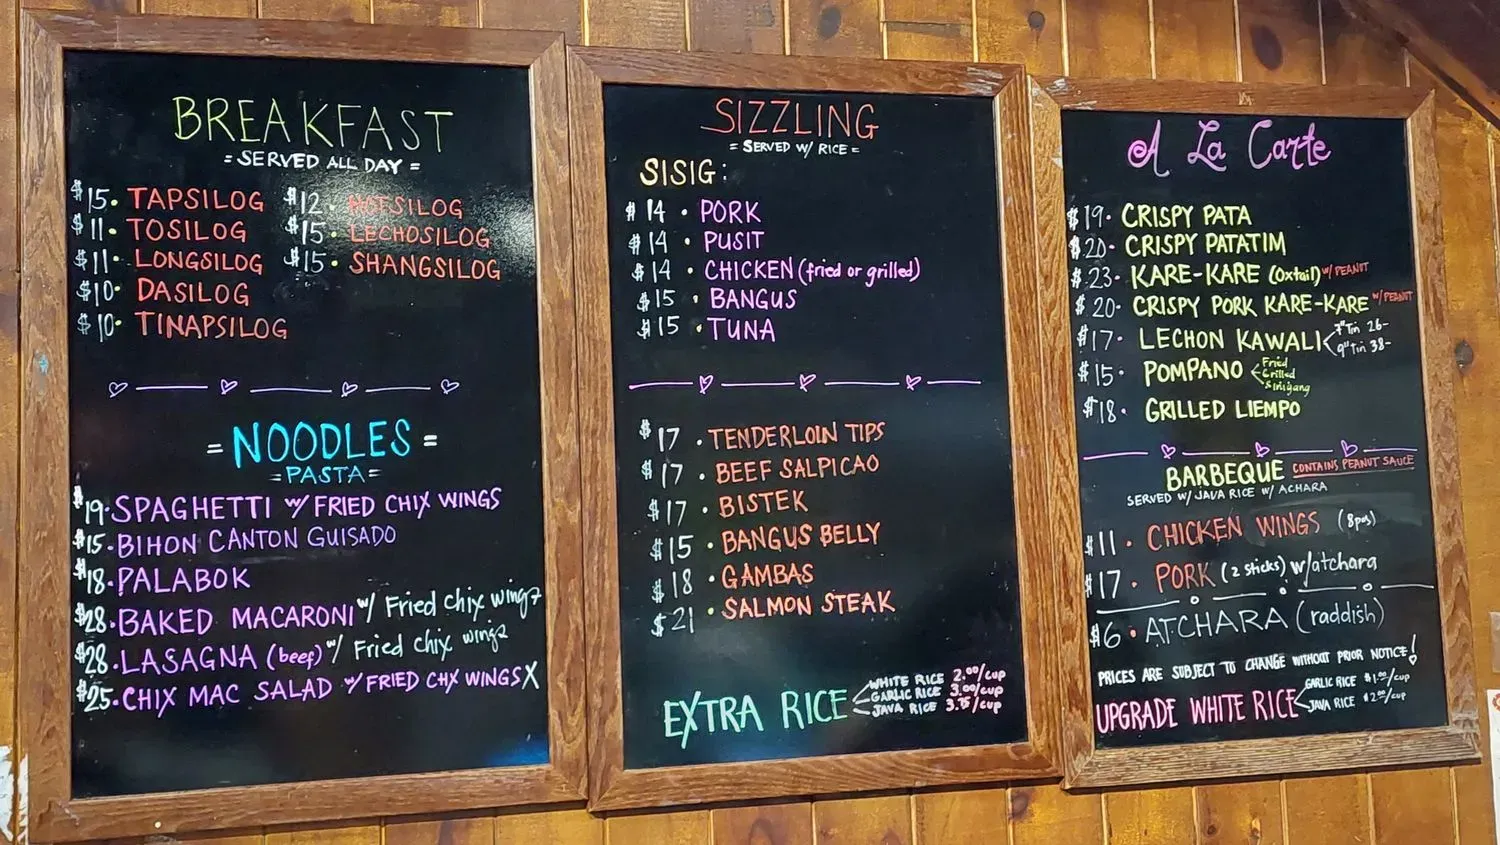 BREAKFAST
= SERVED ALL DAY =
$15. TAPSILOG
$11. TOSILOG
$11. LONGSILOG
$10. DASILOG
$10. TINAPSILOG
$12. HOTSILOG
$15. LECHOSILOG
$15. SHANGSILOG
= NOODLES =
= PASTA =
$19. SPAGHETTI w/ FRIED CHIX WINGS
$15. BIHON CANTON GUISADO
$18. PALABOK
$28. BAKED MACARONI w/ Fried chix wings
$28. LASAGNA (beef) w/ Fried chix wings
$25. CHIX MAC SALAD w/ FRIED CHX WINGS X
SIZZLING
= SERVED W/ RICE =
SISIG:
$14 . PORK
$14 . PUSIT
$14 . CHICKEN (fried or grilled)
$15 . BANGUS
$15 . TUNA
$17 . TENDERLOIN TIPS
$17 . BEEF SALPICAO
$17 . BISTEK
$15 . BANGUS BELLY
$18 . GAMBAS
$21 . SALMON STEAK
EXTRA RICE
WHITE RICE 2.00/cup
GARLIC RICE 3.00/cup
JAVA RICE 3.75/cup
A La Carte
$19. CRISPY PATA
$20. CRISPY PATATIM
$23. KARE-KARE (Oxtail) w/ PEANUT
$20. CRISPY PORK KARE-KARE w/ PEANUT
$17. LECHON KAWALI
7" Tin 26-
9" Tin 38-
$15. POMPANO
Fried
Grilled
Sinigang
$18. GRILLED LIEMPO
BARBEQUE CONTAINS PEANUT SAUCE
SERVED W/ JAVA RICE W/ ACHARA
$11 . CHICKEN WINGS (8pcs)
$17 . PORK (2 sticks) w/atchara
$6 . ATCHARA (raddish)
PRICES ARE SUBJECT TO CHANGE WITHOUT PRIOR NOTICE!
UPGRADE WHITE RICE
GARLIC RICE $1.00/cup
JAVA RICE $2.00/cup